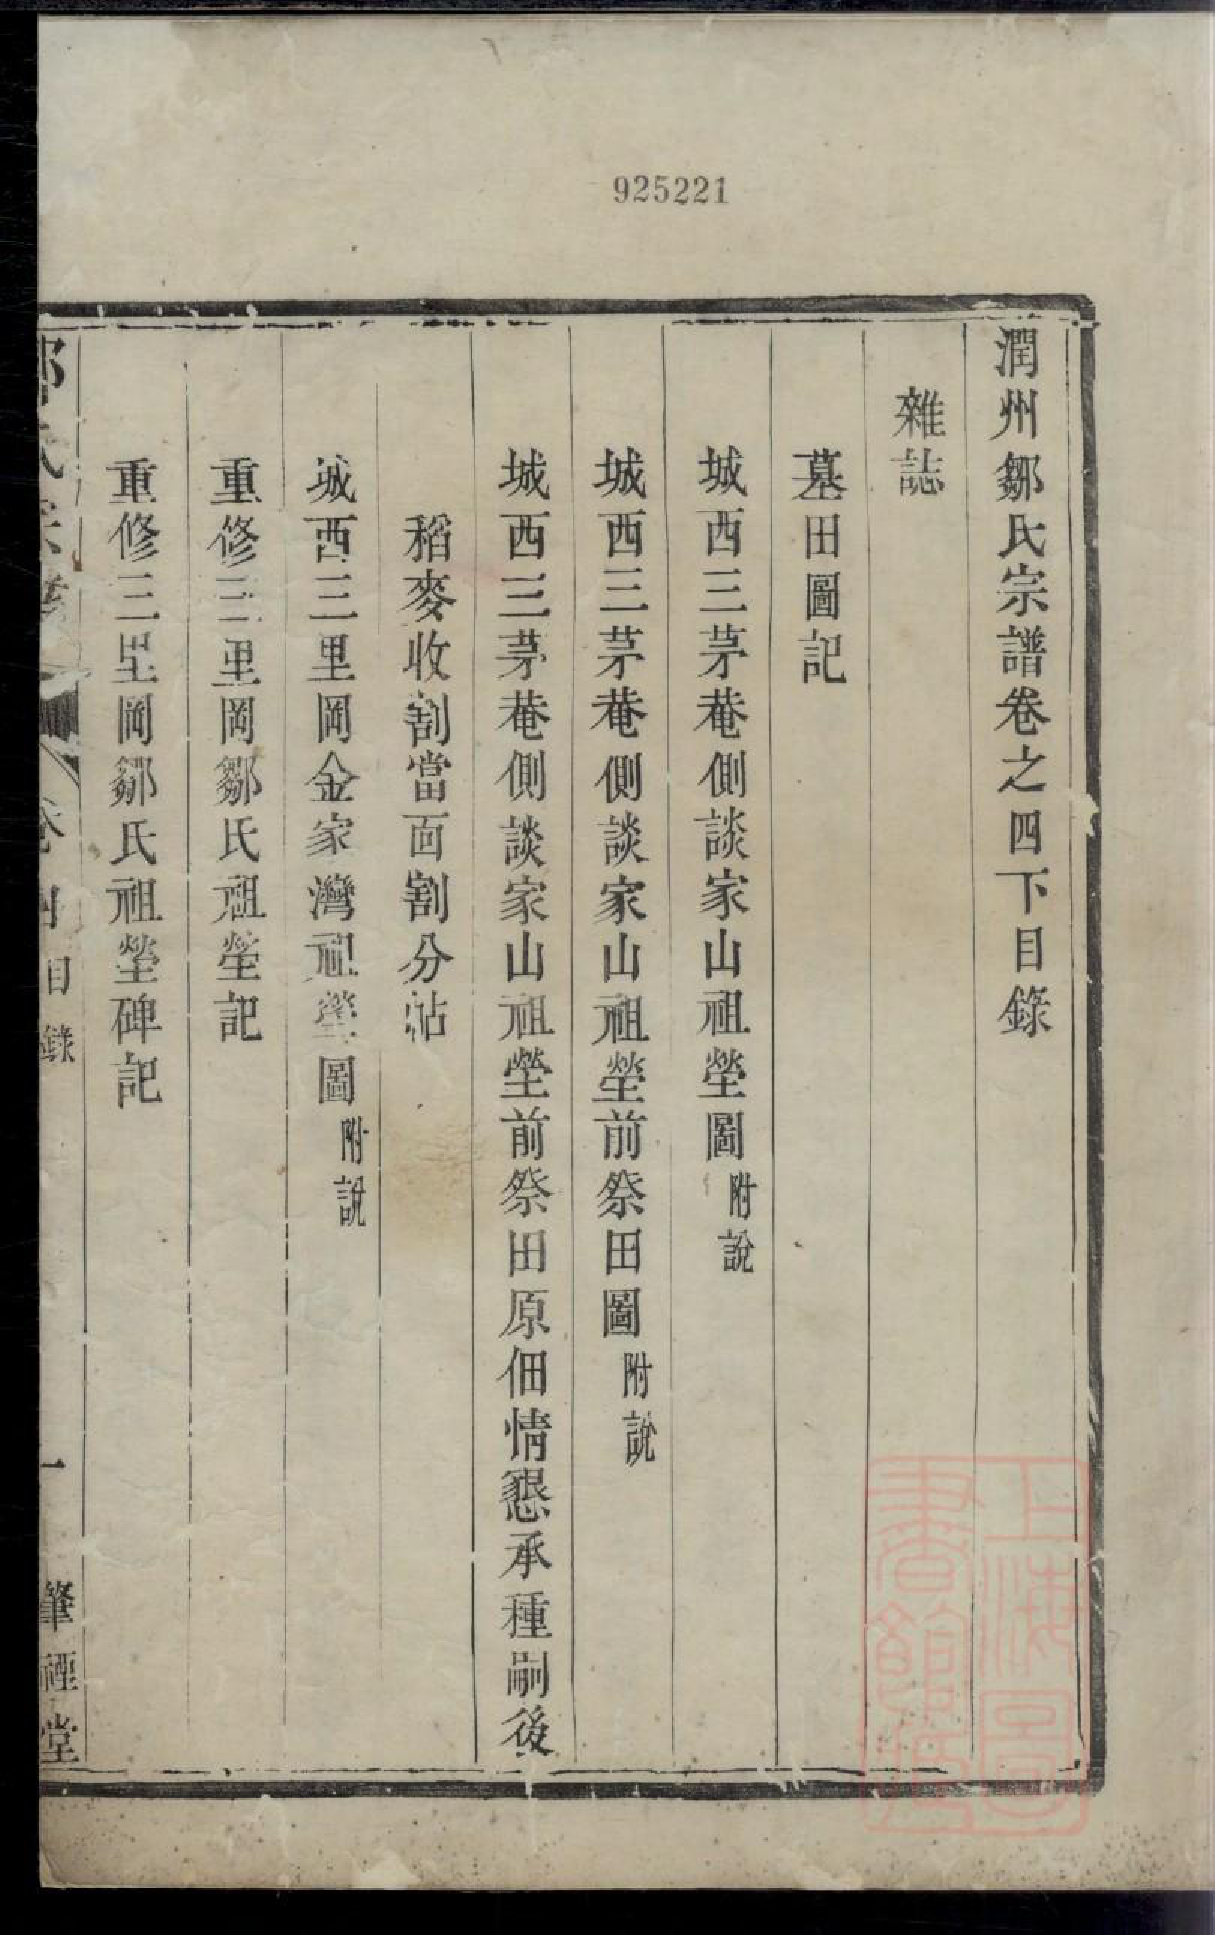 925221
潤州鄒氏宗譜卷之四下目錄
雜誌
墓田圖記
城西三茅菴側談家山祖塋圖附說
城西三茅菴側談家山祖塋前祭田圖附說
城西三茅菴側談家山祖塋前祭田原佃情懇承種嗣後
稻麥收割當面割分帖
城西三里岡金家灣祖塋圖附說
重修三里岡鄒氏祖塋記
重修三里岡鄒氏祖塋碑記
鄒氏宗譜 卷四目錄 一 肇禋堂
上海圖書館藏